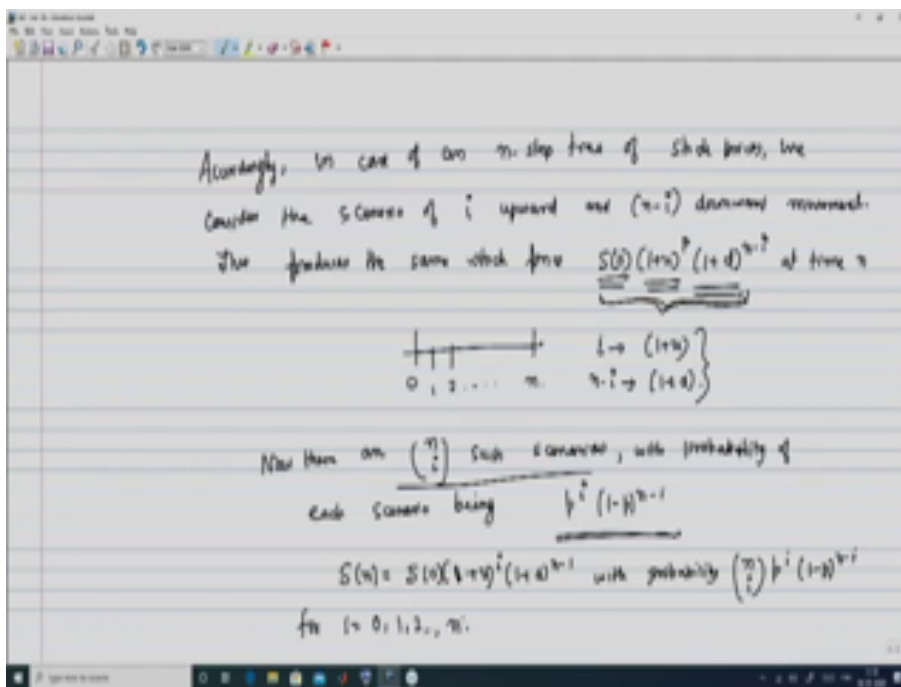 Accordingly, in case of an n-step tree of stock prices, we
consider the scenario of i upward and (n-i) downward movement.
This produces the same stock price S(0)(1+u)^i (1+d)^{n-i} at time n
i → (1+u)
0 1 2 .... n. n-i → (1+d)
Now there are \binom{n}{i} such scenarios, with probability of
each scenario being p^i (1-p)^{n-i}
S(n) = S(0)(1+u)^i (1+d)^{n-i} with probability \binom{n}{i} p^i (1-p)^{n-i}
for i = 0, 1, 2.., n.